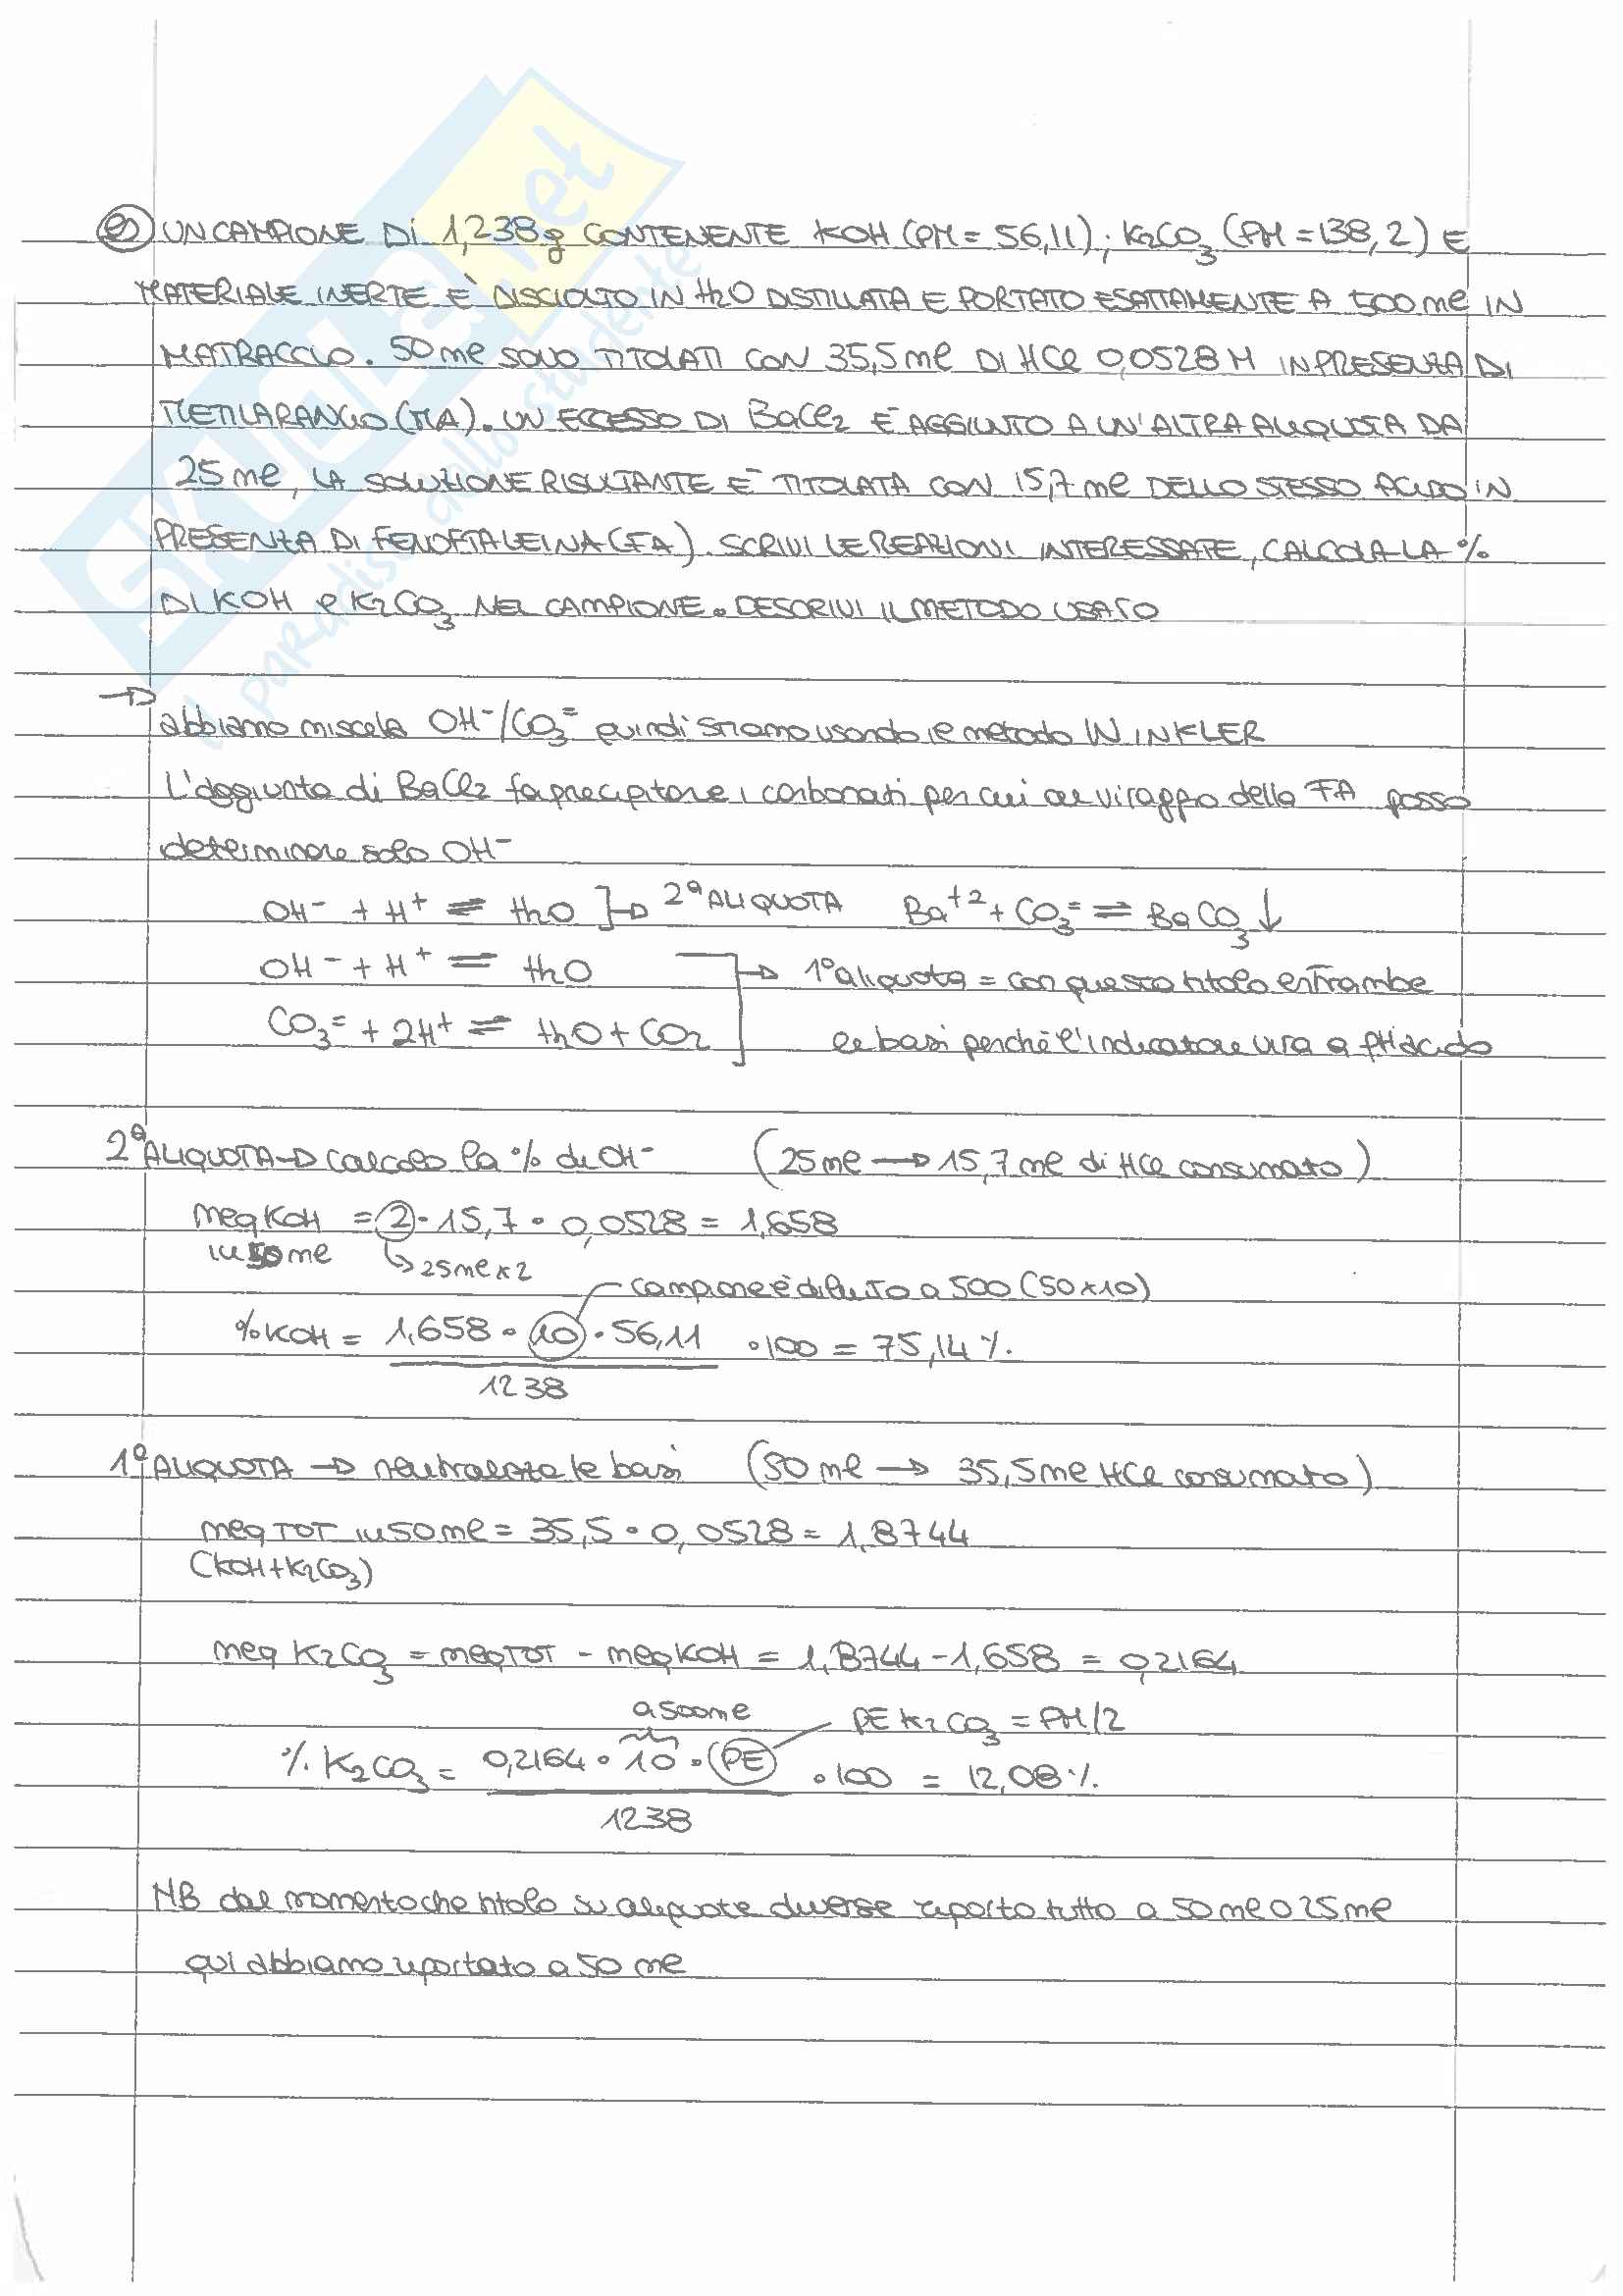 es UN CAMPIONE DI 1,238g CONTENENTE KOH (PM = 56,11); K2CO3 (PM = 138,2) E
MATERIALE INERTE È DISCIOLTO IN H2O DISTILLATA E PORTATO ESATTAMENTE A 500 ml IN
MATRACCIO. 50 ml SONO TITOLATI CON 35,5 ml DI HCl 0,0528 M IN PRESENZA DI
METILARANCIO (MA). UN ECCESSO DI BaCl2 È AGGIUNTO A UN'ALTRA ALIQUOTA DA
25 ml, LA SOLUZIONE RISULTANTE È TITOLATA CON 15,7 ml DELLO STESSO ACIDO IN
PRESENZA DI FENOFTALEINA (FA). SCRIVI LE REAZIONI INTERESSATE, CALCOLA LA %
DI KOH e K2CO3 NEL CAMPIONE. DESCRIVI IL METODO USATO
→ abbiamo miscela OH-/CO3= quindi stiamo usando il metodo WINKLER
L'aggiunta di BaCl2 fa precipitare i carbonati per cui al viraggio della FA posso
determinare solo OH-
OH- + H+ ⇌ H2O ]→ 2ª ALIQUOTA Ba+2 + CO3= ⇌ BaCO3↓
OH- + H+ = H2O → 1ª aliquota = con questa titolo entrambe
CO3= + 2H+ ⇌ H2O + CO2 le basi perchè l'indicatore vira a pH acido
2ª ALIQUOTA → calcolo la % di OH- (25 ml → 15,7 ml di HCl consumato)
meq KOH = 2 · 15,7 · 0,0528 = 1,658
in 50 ml ↳ 25ml x 2
campione è diluito a 500 (50x10)
% KOH = 1,658 · 10 · 56,11 · 100 = 75,14 %.
1238
1ª ALIQUOTA → neutralizzate le basi (50 ml → 35,5 ml HCl consumato)
meq TOT in 50 ml = 35,5 · 0,0528 = 1,8744
(KOH + K2CO3)
meq K2CO3 = meq TOT - meq KOH = 1,8744 - 1,658 = 0,2164
a 500 ml PE K2CO3 = PM/2
% K2CO3 = 0,2164 · 10 · PE · 100 = 12,08 %.
1238
NB dal momento che titolo su aliquote diverse riporto tutto a 50 ml o 25 ml
qui abbiamo riportato a 50 ml
SKUOLA.net
il paradiso dello studente